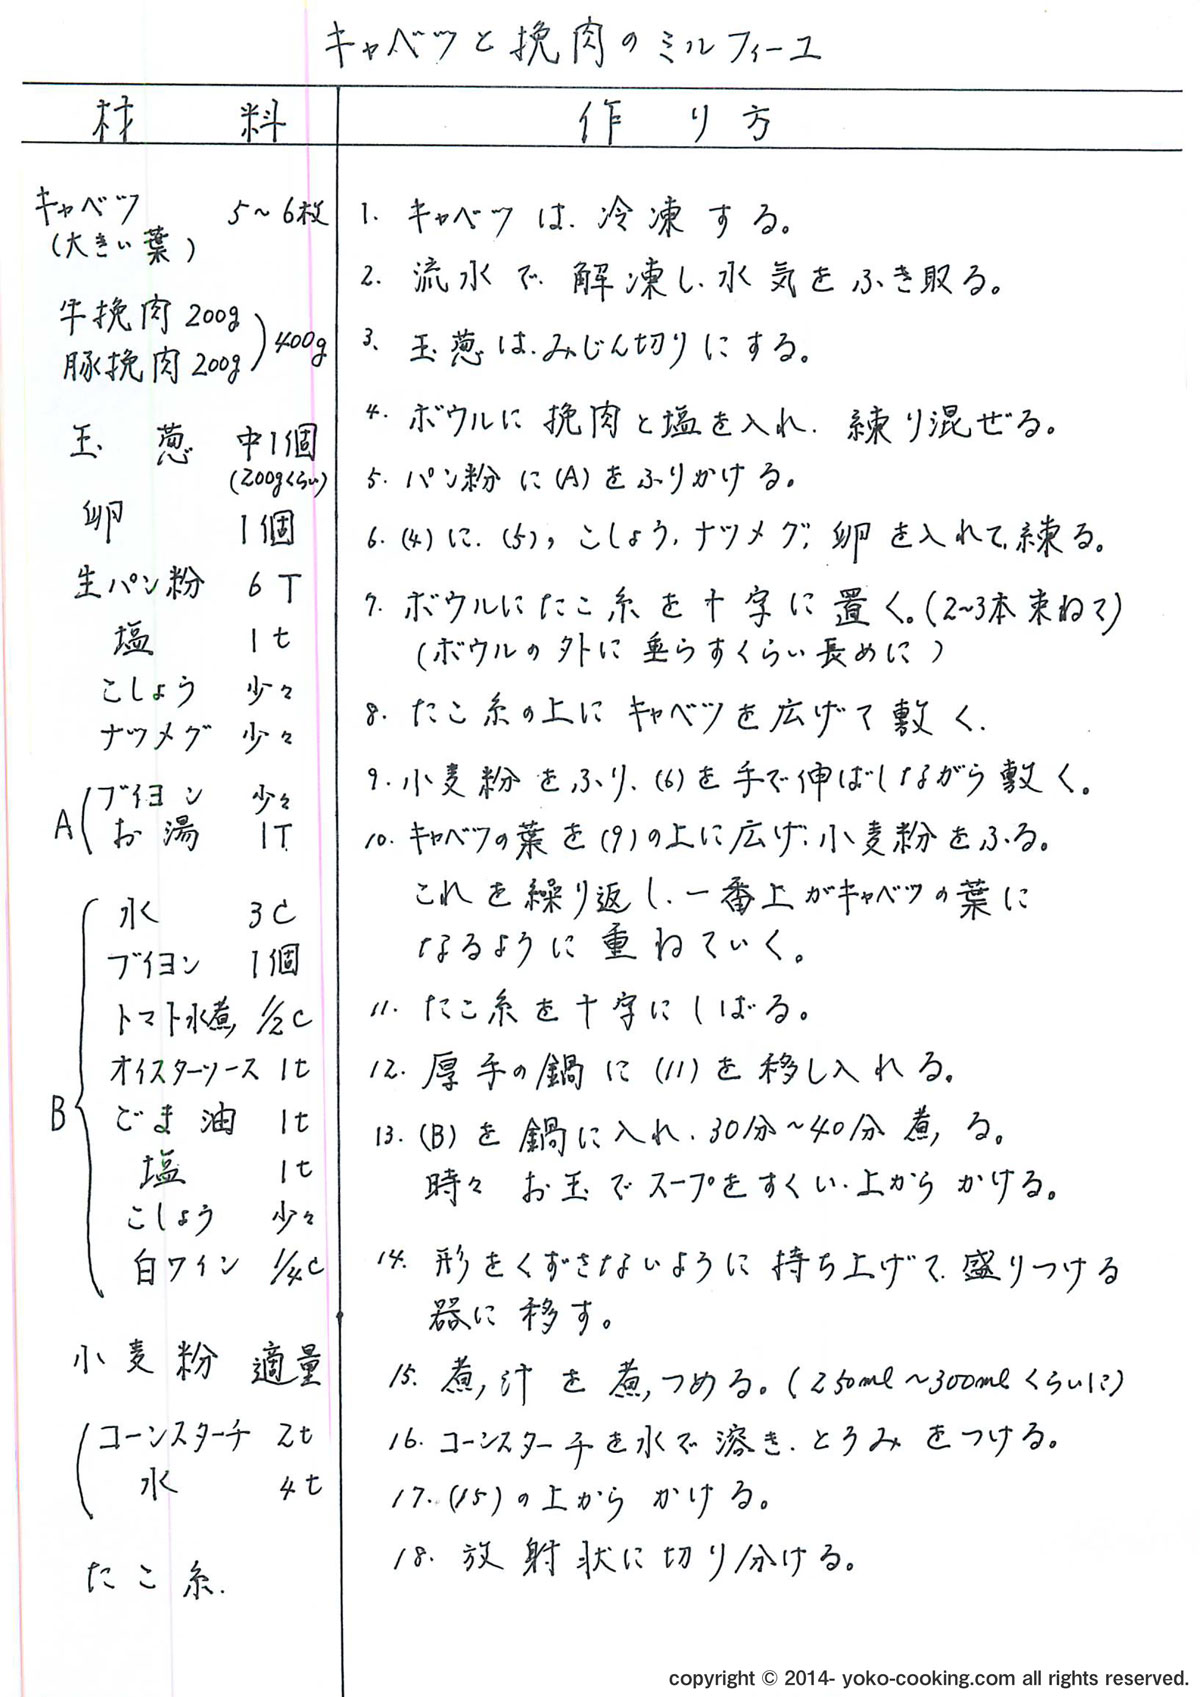 キャベツと挽肉のミルフィーユ
材 料
作 り 方
キャベツ 5～6枚
(大きい葉)
牛挽肉 200g
豚挽肉 200g
400g
玉 葱 中1個
(200gくらい)
卵 1個
生パン粉 6T
塩 1t
こしょう 少々
ナツメグ 少々
A
ブイヨン 少々
お湯 1T
B
水 3C
ブイヨン 1個
トマト水煮 1/2C
オイスターソース 1t
ごま油 1t
塩 1t
こしょう 少々
白ワイン 1/4C
小麦粉 適量
コーンスターチ 2t
水 4t
たこ糸.
1. キャベツは、冷凍する。
2. 流水で、解凍し、水気をふき取る。
3、玉葱は、みじん切りにする。
4. ボウルに挽肉と塩を入れ、練り混ぜる。
5. パン粉に(A)をふりかける。
6. (4)に、(5), こしょう, ナツメグ, 卵を入れて、練る。
7. ボウルにたこ糸を十字に置く。(2~3本束ねて)
(ボウルの外に垂らすくらい長めに)
8. たこ糸の上にキャベツを広げて敷く.
9. 小麦粉をふり、(6)を手で伸ばしながら敷く。
10. キャベツの葉を(9)の上に広げ、小麦粉をふる。
これを繰り返し、一番上がキャベツの葉に
なるように重ねていく。
11. たこ糸を十字にしばる。
12. 厚手の鍋に(11)を移し入れる。
13. (B)を鍋に入れ、30分～40分煮る。
時々お玉でスープをすくい、上からかける。
14. 形をくずさないように持ち上げて、盛りつける
器に移す。
15. 煮汁を煮つめる。(250ml～300mlくらいに)
16. コーンスターチを水で溶き、とろみをつける。
17. (15)の上からかける。
18. 放射状に切り分ける。
copyright © 2014- yoko-cooking.com all rights reserved.